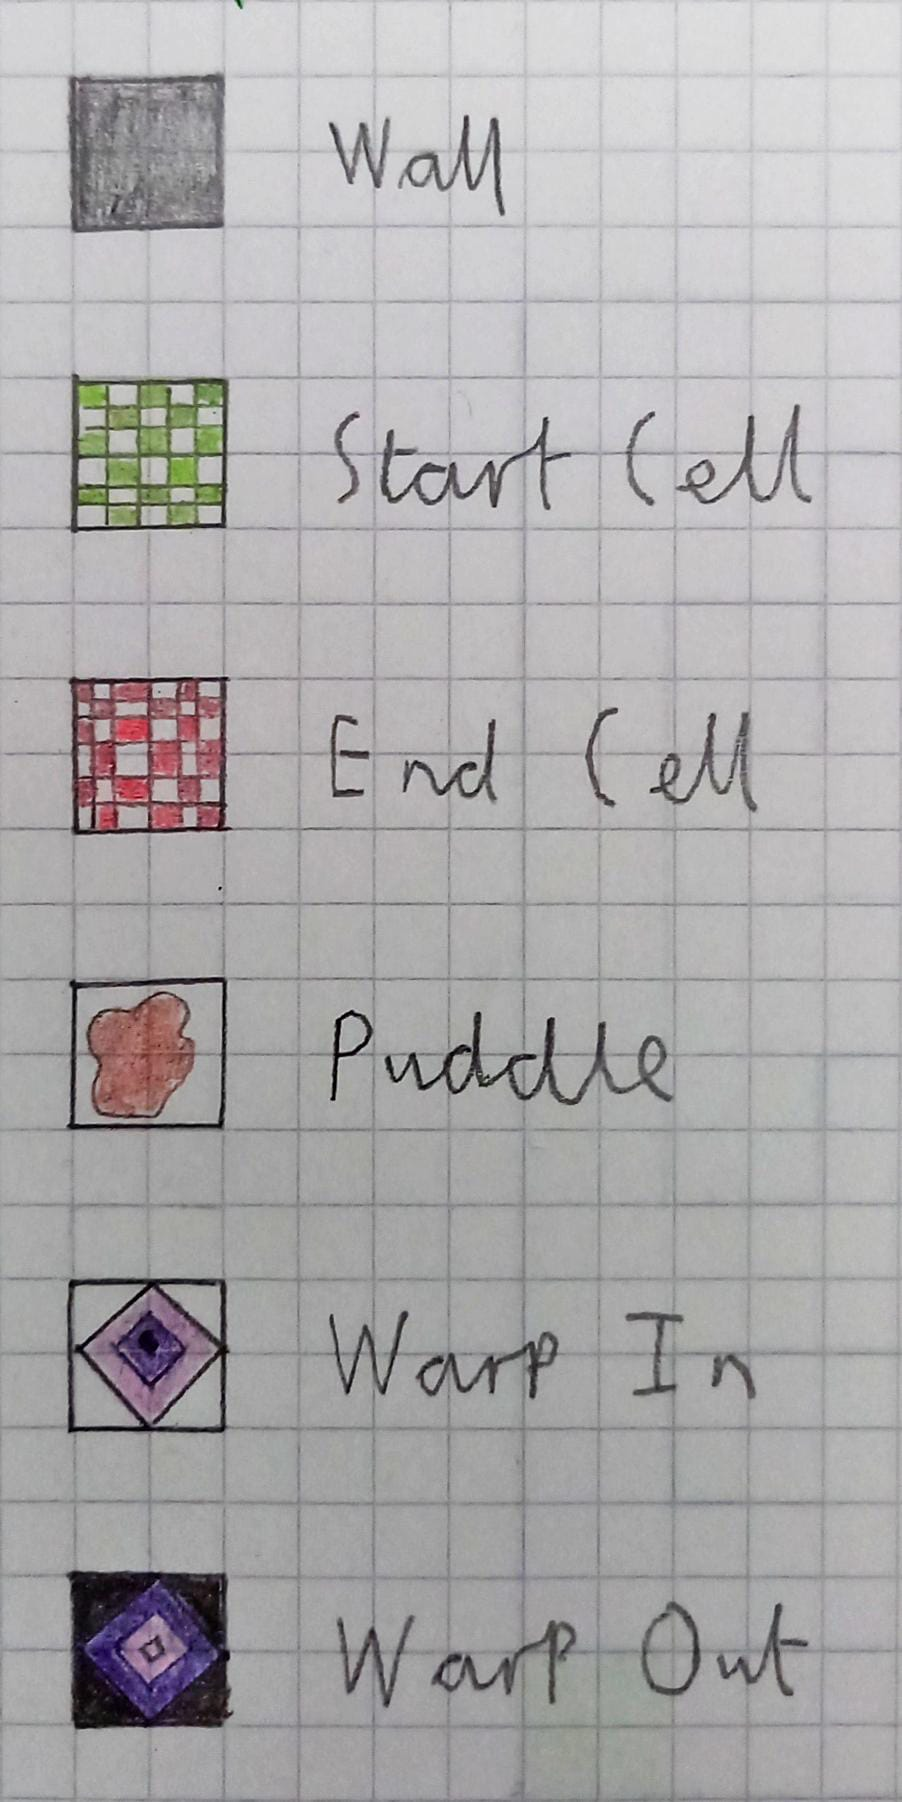 Wall
Start Cell
End Cell
Puddle
Warp In
Warp Out